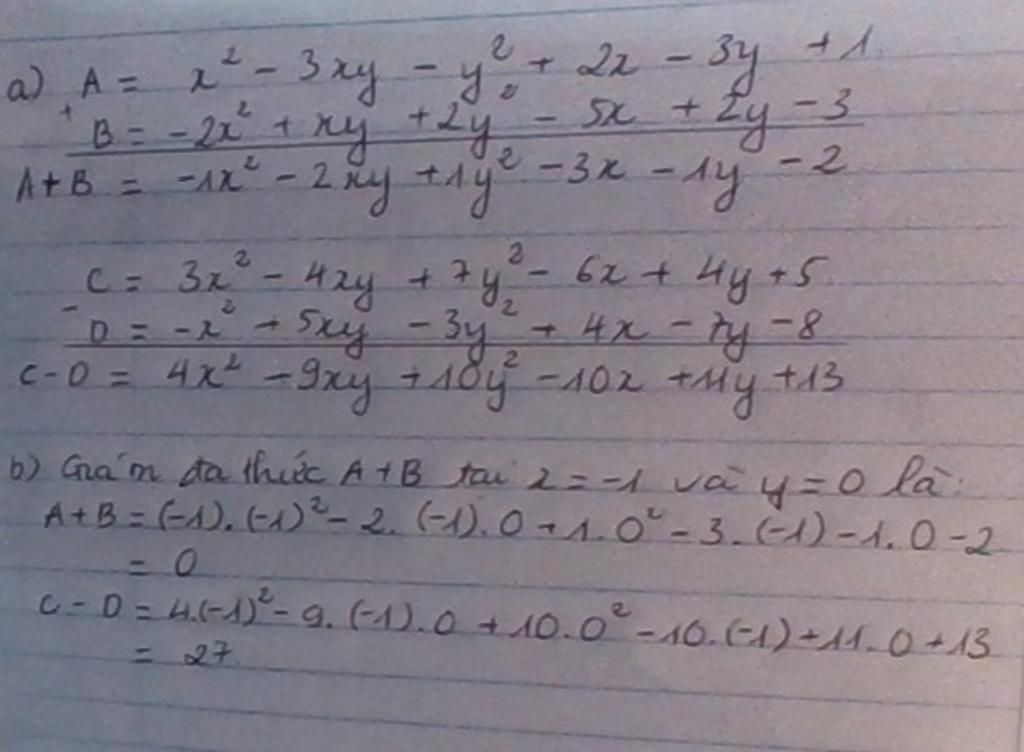 a) A = x² - 3xy - y² + 2x - 3y + 1
+ B = -2x² + xy + 2y² - 5x + 2y - 3
A+B = -1x² - 2xy + 1y² - 3x - 1y - 2
C = 3x² - 4xy + 7y² - 6x + 4y + 5
- D = -x² + 5xy - 3y² + 4x - 7y - 8
C-D = 4x² - 9xy + 10y² - 10x + 11y + 13
b) đa thức A+B tại x = -1 và y = 0 là:
A+B = (-1).(-1)² - 2.(-1).0 + 1.0² - 3.(-1) - 1.0 - 2
= 0
C-D = 4.(-1)² - 9.(-1).0 + 10.0² - 10.(-1) + 11.0 + 13
= 27